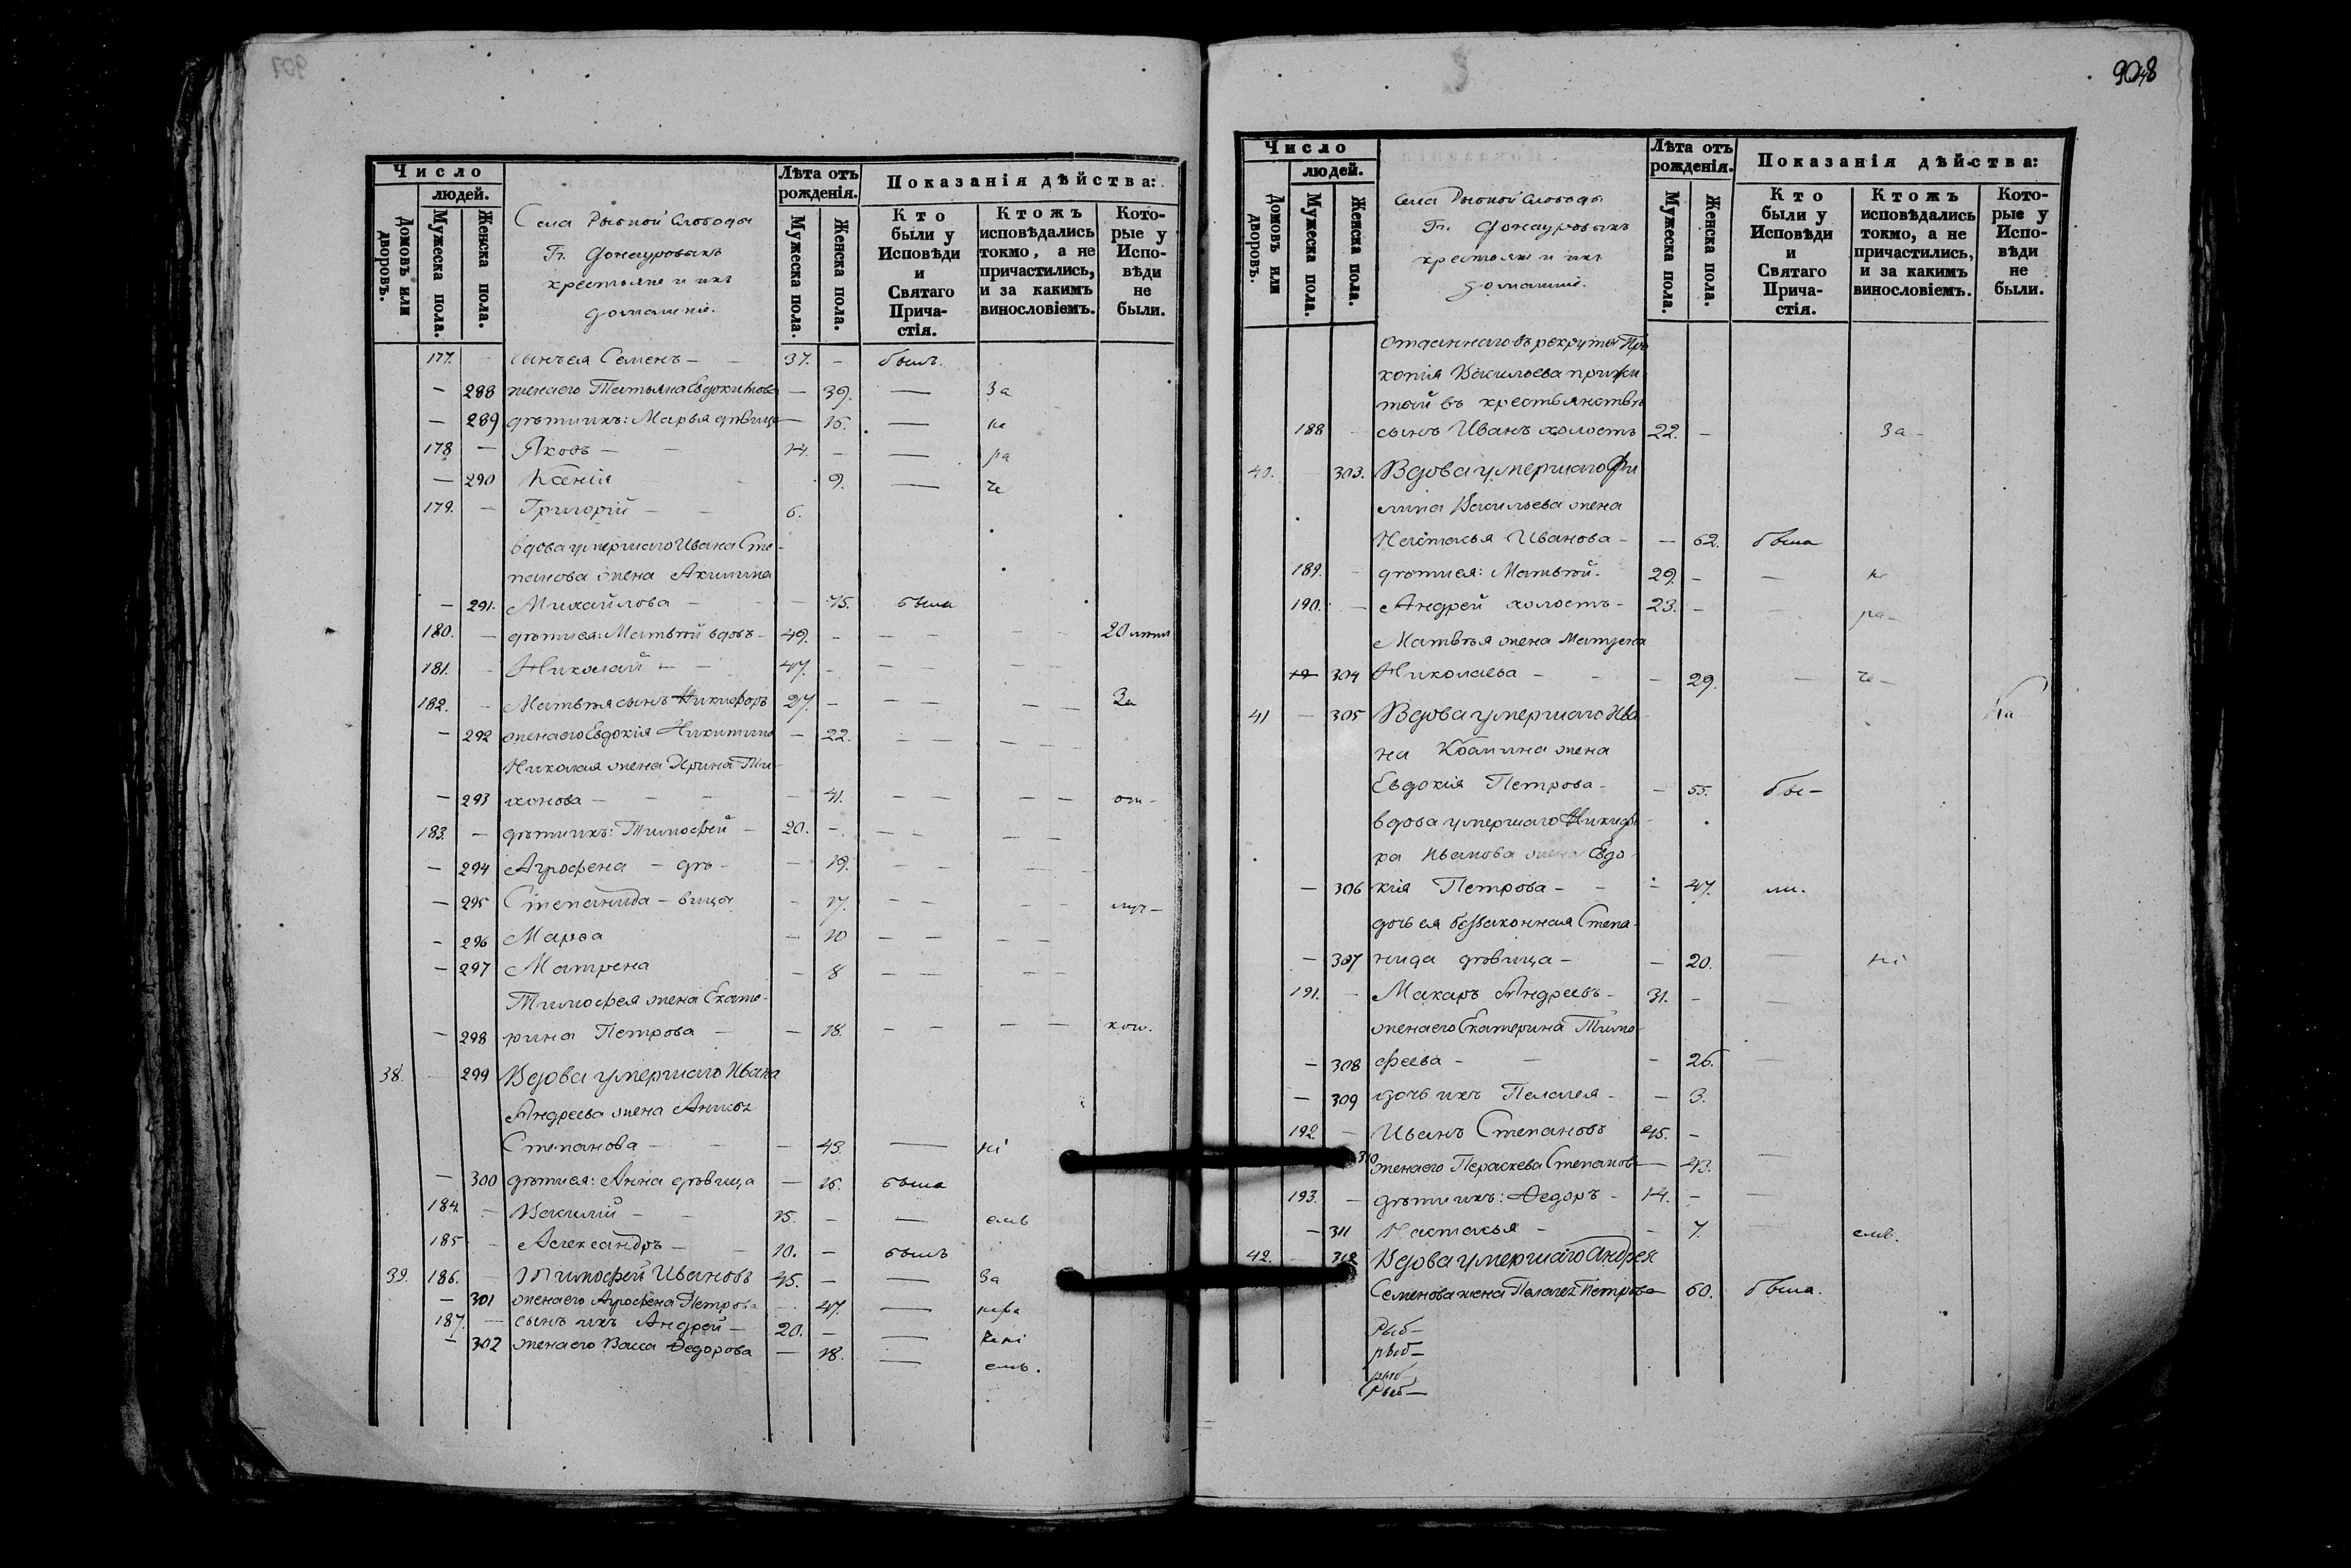 907
Число
людей.
Домовъ или дворовъ.
Мужеска пола.
Женска пола.
Села Рыбной Слободы
Гг. Фонауровыхъ
крестьяне и ихъ
домашніе.
Лѣта отъ рожденія.
Мужеска пола.
Женска пола.
Показанія дѣйства:
Кто были у Исповѣди и Святаго Причастія.
Ктожъ исповѣдались токмо, а не причастились, и за какимъ винословіемъ.
Которые у Исповѣди не были.
177. — сынъ ея Семенъ — 37. — былъ.
— 288 жена его Татьяна Евдокимова — 39. — За
— 289 дѣти ихъ: Марья дѣвица — 16. — не
178 — Яковъ — 14. — — ра
— 290 Ксенія 9. — че
179. — Григорій — 6.
вдова умершаго Ивана Сте-
панова жена Акилина
— 291. Михайлова — 75. была
180. — дѣти ея: Матвѣй вдовъ — 49. — — — — — 20 лѣтъ
181. — Николай — 47. — — — — —
182. — Матвѣя сынъ Никифоръ 27. — — — — — За
— 292 жена его Евдокія Никитина — 22. — — — —
Николая жена Ирина Ти-
— 293 хонова — — 41. — — — — от-
183. — дѣти ихъ: Тимофей — 20. — — — — —
— 294 Агрофена — дѣ- — 19. — — — —
— 295 Степанида — вица — 17. — — — — луч-
— 296 Марѳа — 10 — — — —
— 297 Матрена — 8 — — — —
Тимофея жена Екате-
— 298 рина Петрова — — 18. — — — — кою.
38. 299 Вдова умершаго Ивана
Андреева жена
Степанова — — 43. — ні
— 300 дѣти ея: Анна дѣвица — 16. была
184. — Василій — 15. — — емъ
185 — Александръ — 10. — былъ
39. 186. — Тимофей Ивановъ 45. — — За
— 301 жена его Агрофена Петрова — 47. — нера
187. — сынъ ихъ Андрей — 20. — —
— 302 жена его Васса Ѳедорова — 18. — емъ.
908
Число
людей.
Домовъ или дворовъ.
Мужеска пола.
Женска пола.
Села Рыбной Слободы
Гг. Фонауровыхъ
крестьяне и ихъ
домашніе.
Лѣта отъ рожденія.
Мужеска пола.
Женска пола.
Показанія дѣйства:
Кто были у Исповѣди и Святаго Причастія.
Ктожъ исповѣдались токмо, а не причастились, и за какимъ винословіемъ.
Которые у Исповѣди не были.
отданнаго въ рекруты Про
копія Васильева прижи
тый въ крестьянствѣ
188 — сынъ Иванъ холостъ 22. — За —
40. 303. Вдова умершаго Фи
липа Васильева жена
Настасья Иванова — — 62. была
189. — дѣти ея: Матвѣй. 29. — — не
190. — Андрей холостъ — 23. — — ра-
Матвѣя жена Матрена
304 Николаева — — 29. — че-
41 — 305 Вдова умершаго Ива
на Козмина жена
Евдокія Петрова — — 55. бы-
вдова умершаго Никифо
ра Иванова жена Евдо-
— 306 кія Петрова — — 47. ли.
дочь ея беззаконная Степа-
— 307 нида дѣвица — — 20. — ні
191. — Макаръ Андреевъ — 31. — —
жена его Екатерина Тимо-
— 308 феева — — 26. —
— 309 дочь ихъ Пелагея — — 3.
192. — Иванъ Степановъ 45. —
жена его Параскева Степанов— 43. —
193. — дѣти ихъ: Ѳедоръ — 14. — —
— 311 Настасья — — 7. — емъ.
42. — 312 Вдова умершаго Андрея
Семенова жена Пелагея Петрова 60. была.
Рыб—
рыб—
рыб
Рыб—